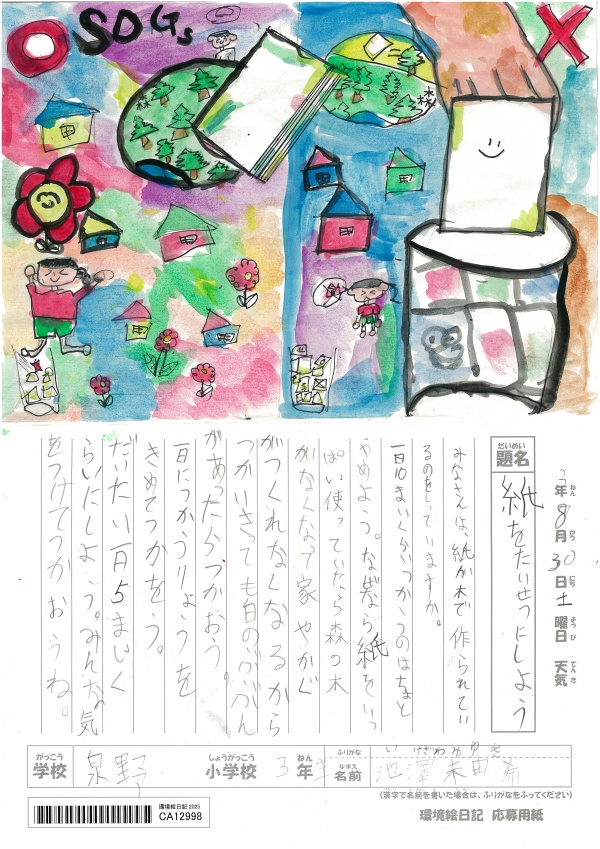 SDGs
だいめい
題名
紙をたいせつにしよう
年 8月30日 土曜日 天気
ねん がつ にち ようび てんき
みなさんは、紙が木で作られてい
るのをしっていますか。
一日10まいくらいつかうのはちょっと
やめよう。なぜなら紙をいっ
ぱい使っていたら森の木
がなくなって家やかぐ
がつくれなくなるから
つかいきっても白のぶぶん
があったらつかおう。
一日につかうりょうを
きめてつかおう。
だいたい一日5まいく
らいにしよう。みんな気
をつけてつかおうね。
がっこう
学校
泉野
しょうがっこう
小学校
3
ねん
年
ふりがな
なまえ
名前
いけざわ
池澤
(漢字で名前を書いた場合は、ふりがなをふってください)
環境絵日記 応募用紙
環境絵日記 2025
CA12998